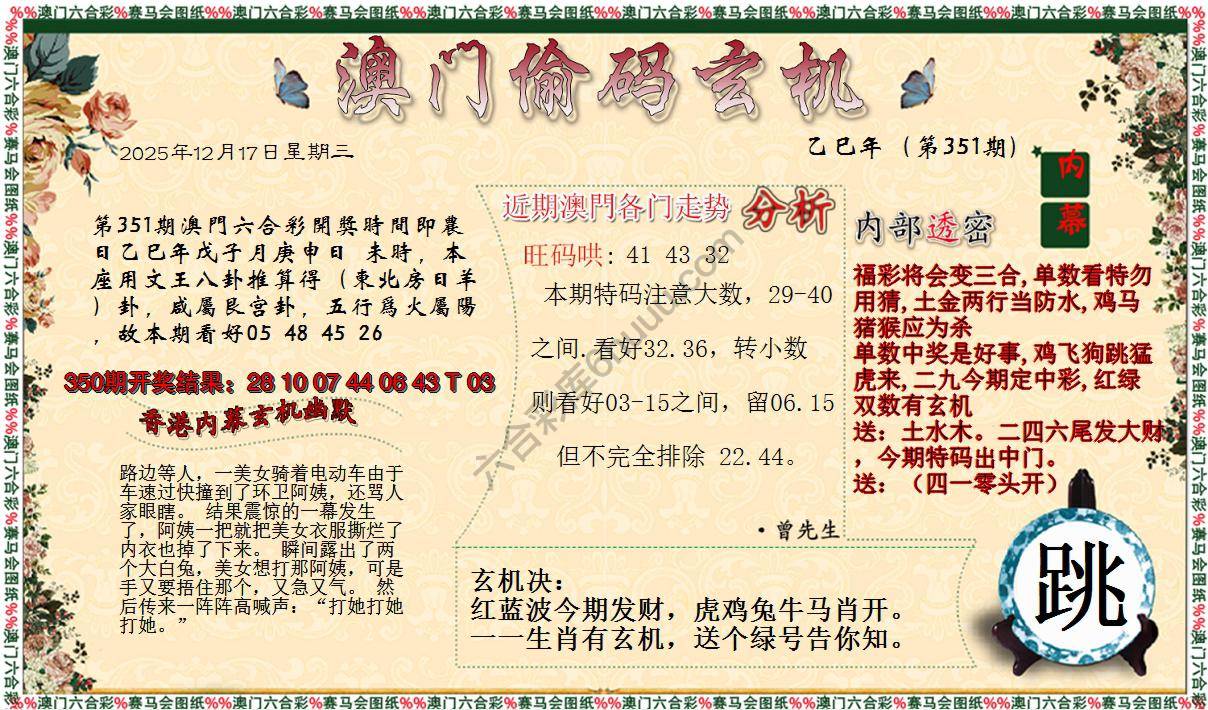 %%澳门六合彩%赛马会图纸%%澳门六合彩%赛马会图纸%%澳门六合彩%赛马会图纸%%澳门六合彩%赛马会图纸%%澳门六合彩%赛马会图纸%%澳门六合彩%赛马会图纸%%
澳门偷码玄机
2025年12月17日星期三
乙巳年（第351期）
内幕
第351期澳門六合彩開獎時間即農
日乙巳年戊子月庚申日 未時，本
座用文王八卦推算得（東北房日羊
）卦，咸屬艮宫卦，五行爲火屬陽
，故本期看好05 48 45 26
350期开奖结果：28 10 07 44 06 43 T 03
香港内幕玄机幽默
路边等人，一美女骑着电动车由于
车速过快撞到了环卫阿姨，还骂人
家眼瞎。 结果震惊的一幕发生
了，阿姨一把就把美女衣服撕烂了
内衣也掉了下来。 瞬间露出了两
个大白兔，美女想打那阿姨，可是
手又要捂住那个，又急又气。 然
后传来一阵阵高喊声：“打她打她
打她。”
近期澳門各门走势 分析
旺码哄: 41 43 32
本期特码注意大数，29-40
之间.看好32.36，转小数
则看好03-15之间，留06.15
但不完全排除 22.44。
·曾先生
内部透密
福彩将会变三合,单数看特勿
用猜,土金两行当防水,鸡马
猪猴应为杀
单数中奖是好事,鸡飞狗跳猛
虎来,二九今期定中彩,红绿
双数有玄机
送：土水木。二四六尾发大财
，今期特码出中门。
送：（四一零头开）
玄机决：
红蓝波今期发财，虎鸡兔牛马肖开。
一一生肖有玄机，送个绿号告你知。
跳
六合彩库6huuu.com
%%澳门六合彩%赛马会图纸%%澳门六合彩%赛马会图纸%%澳门六合彩%赛马会图纸%%澳门六合彩%赛马会图纸%%澳门六合彩%赛马会图纸%%澳门六合彩%赛马会图纸%%